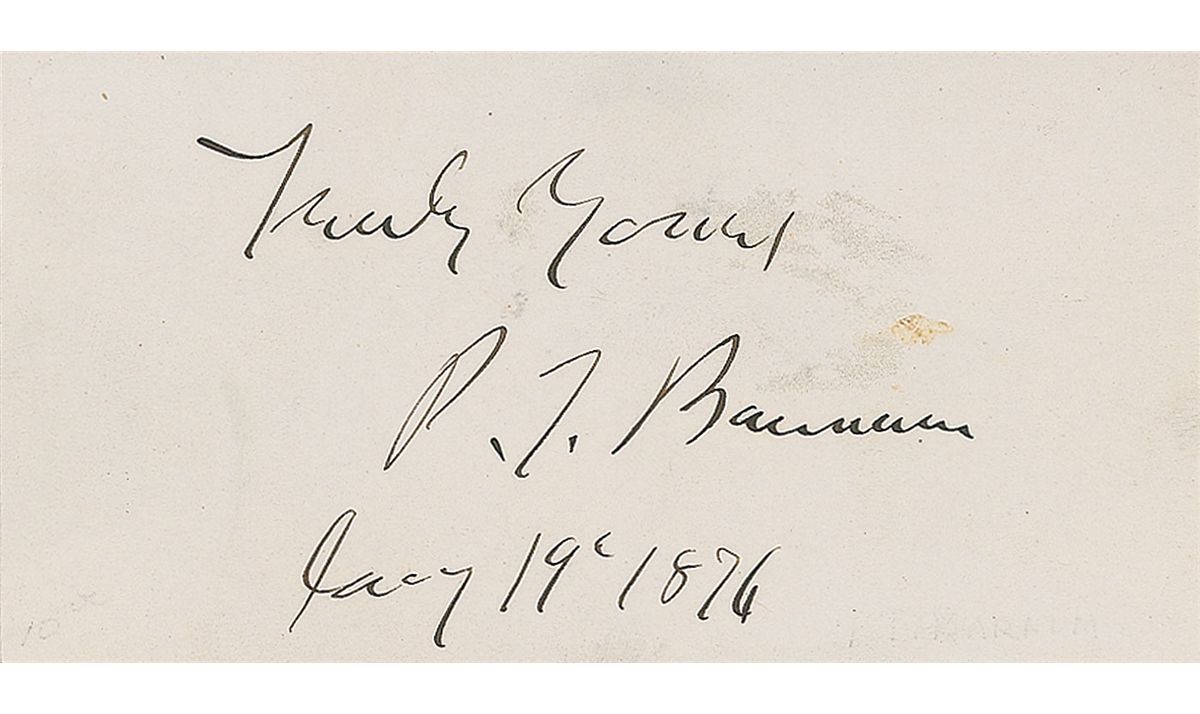 Truly Yours
P. T. Barnum
Jany 19th 1876
10